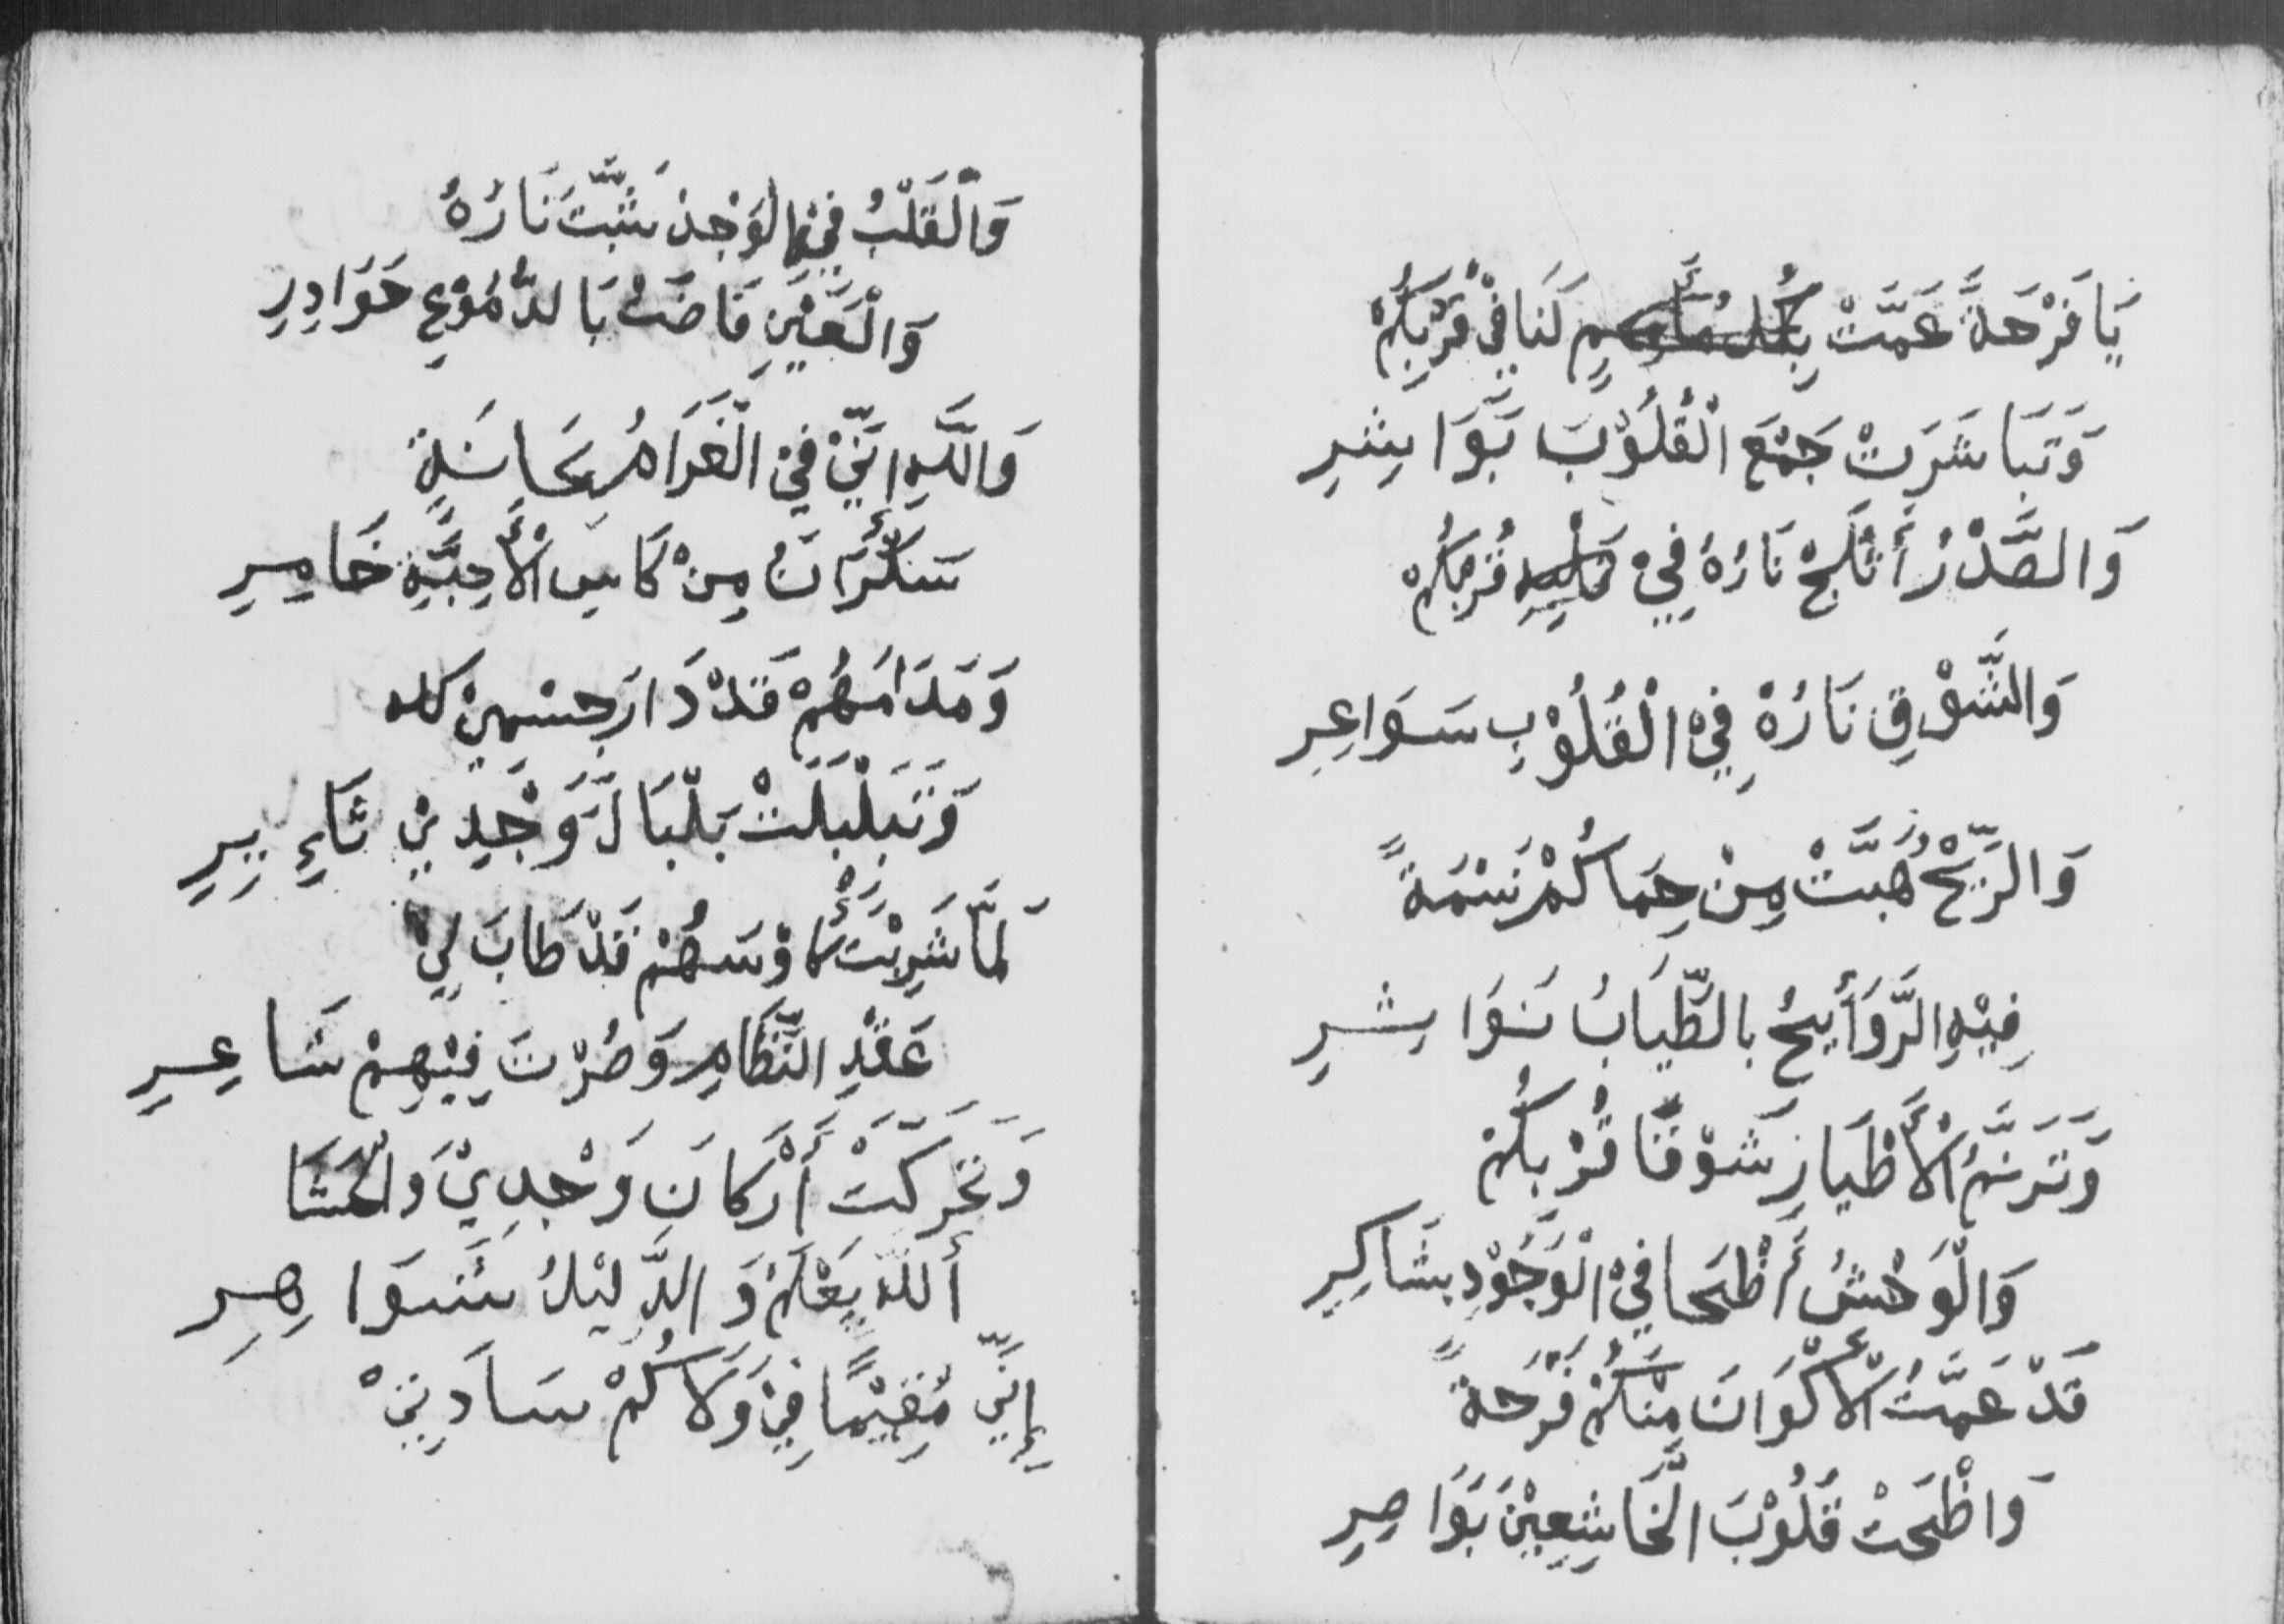 يَا فَرْحَةً عَمَّتْ لَنَا فِيْ قُرْبِكُمْ
وَتَبَاشَرَتْ جَمْعَ الْقُلُوْبَ بَوَاشِرِ
وَالصَّدْرُ أَثْلَجْ نَارُهُ فِيْ قُرْبِكُمْ
وَالشَّوْقِ نَارُهُ فِيْ الْقُلُوْبِ سَوَاعِرِ
وَالرِّيْحُ هَبَّتْ مِنْ حِمَاكُمْ نَسْمَةً
فِيْهِ الرَّوَأيحُ بالطِّيَابُ نَوَاشِرِ
وَتَرَنَّمُ الْأَطْيَارِ شَوْقًا قُرْبِكُمْ
وَالْوَحْشُ أَظْحَا فِيْ الْوَجُوْدِ بشَاكِرِ
قَدْ عَمَّتُ الْأَكْوَانَ مِنْكُمْ فَرْحَةً
وَاظْحَتْ قُلُوْبَ الْخَاشِعِيْنَ بَوَاصِرِ
وَالْقَلْبُ فِيْهِ الوَجْدِ شَبَّتَ نَارُهُ
وَالْعَيْنِ فَاضَتْ بَالدُّمُوْعِ حَوَادِرِ
وَاللَّهِ إنَّيْ فِيْ الْغَرَامُ بِحَانَةٍ
سَكْرَانُ مِنْ كَاسِ الْأَحِبَّةِ خَامِرِ
وَمَدَامُهُمْ قَدْ دَارَ بجسْمِيْ كله
وَتَبَلْبَلَتْ بَلْبَالَ وَجْدِيْ ثَاءِيرِ
لَمَّا شَرِبْتُ كَأْوْسَهُمْ قَدْ طَابَ لِيْ
عَقْدِ النَّظَامِ وَصُرْتَ فِيْهِمْ شَاعِرِ
وَتَحَرَكَّتْ أَرْكَانَ وَجْدِيْ وَالْحَشَا
أَللَّه يَعْلَمْ وَالدَّلِيْلُ شَوَاهِرِ
إِنَّيْ مُقِيْمًا فِيْ وَلَاكُمْ سَادَتِيْ